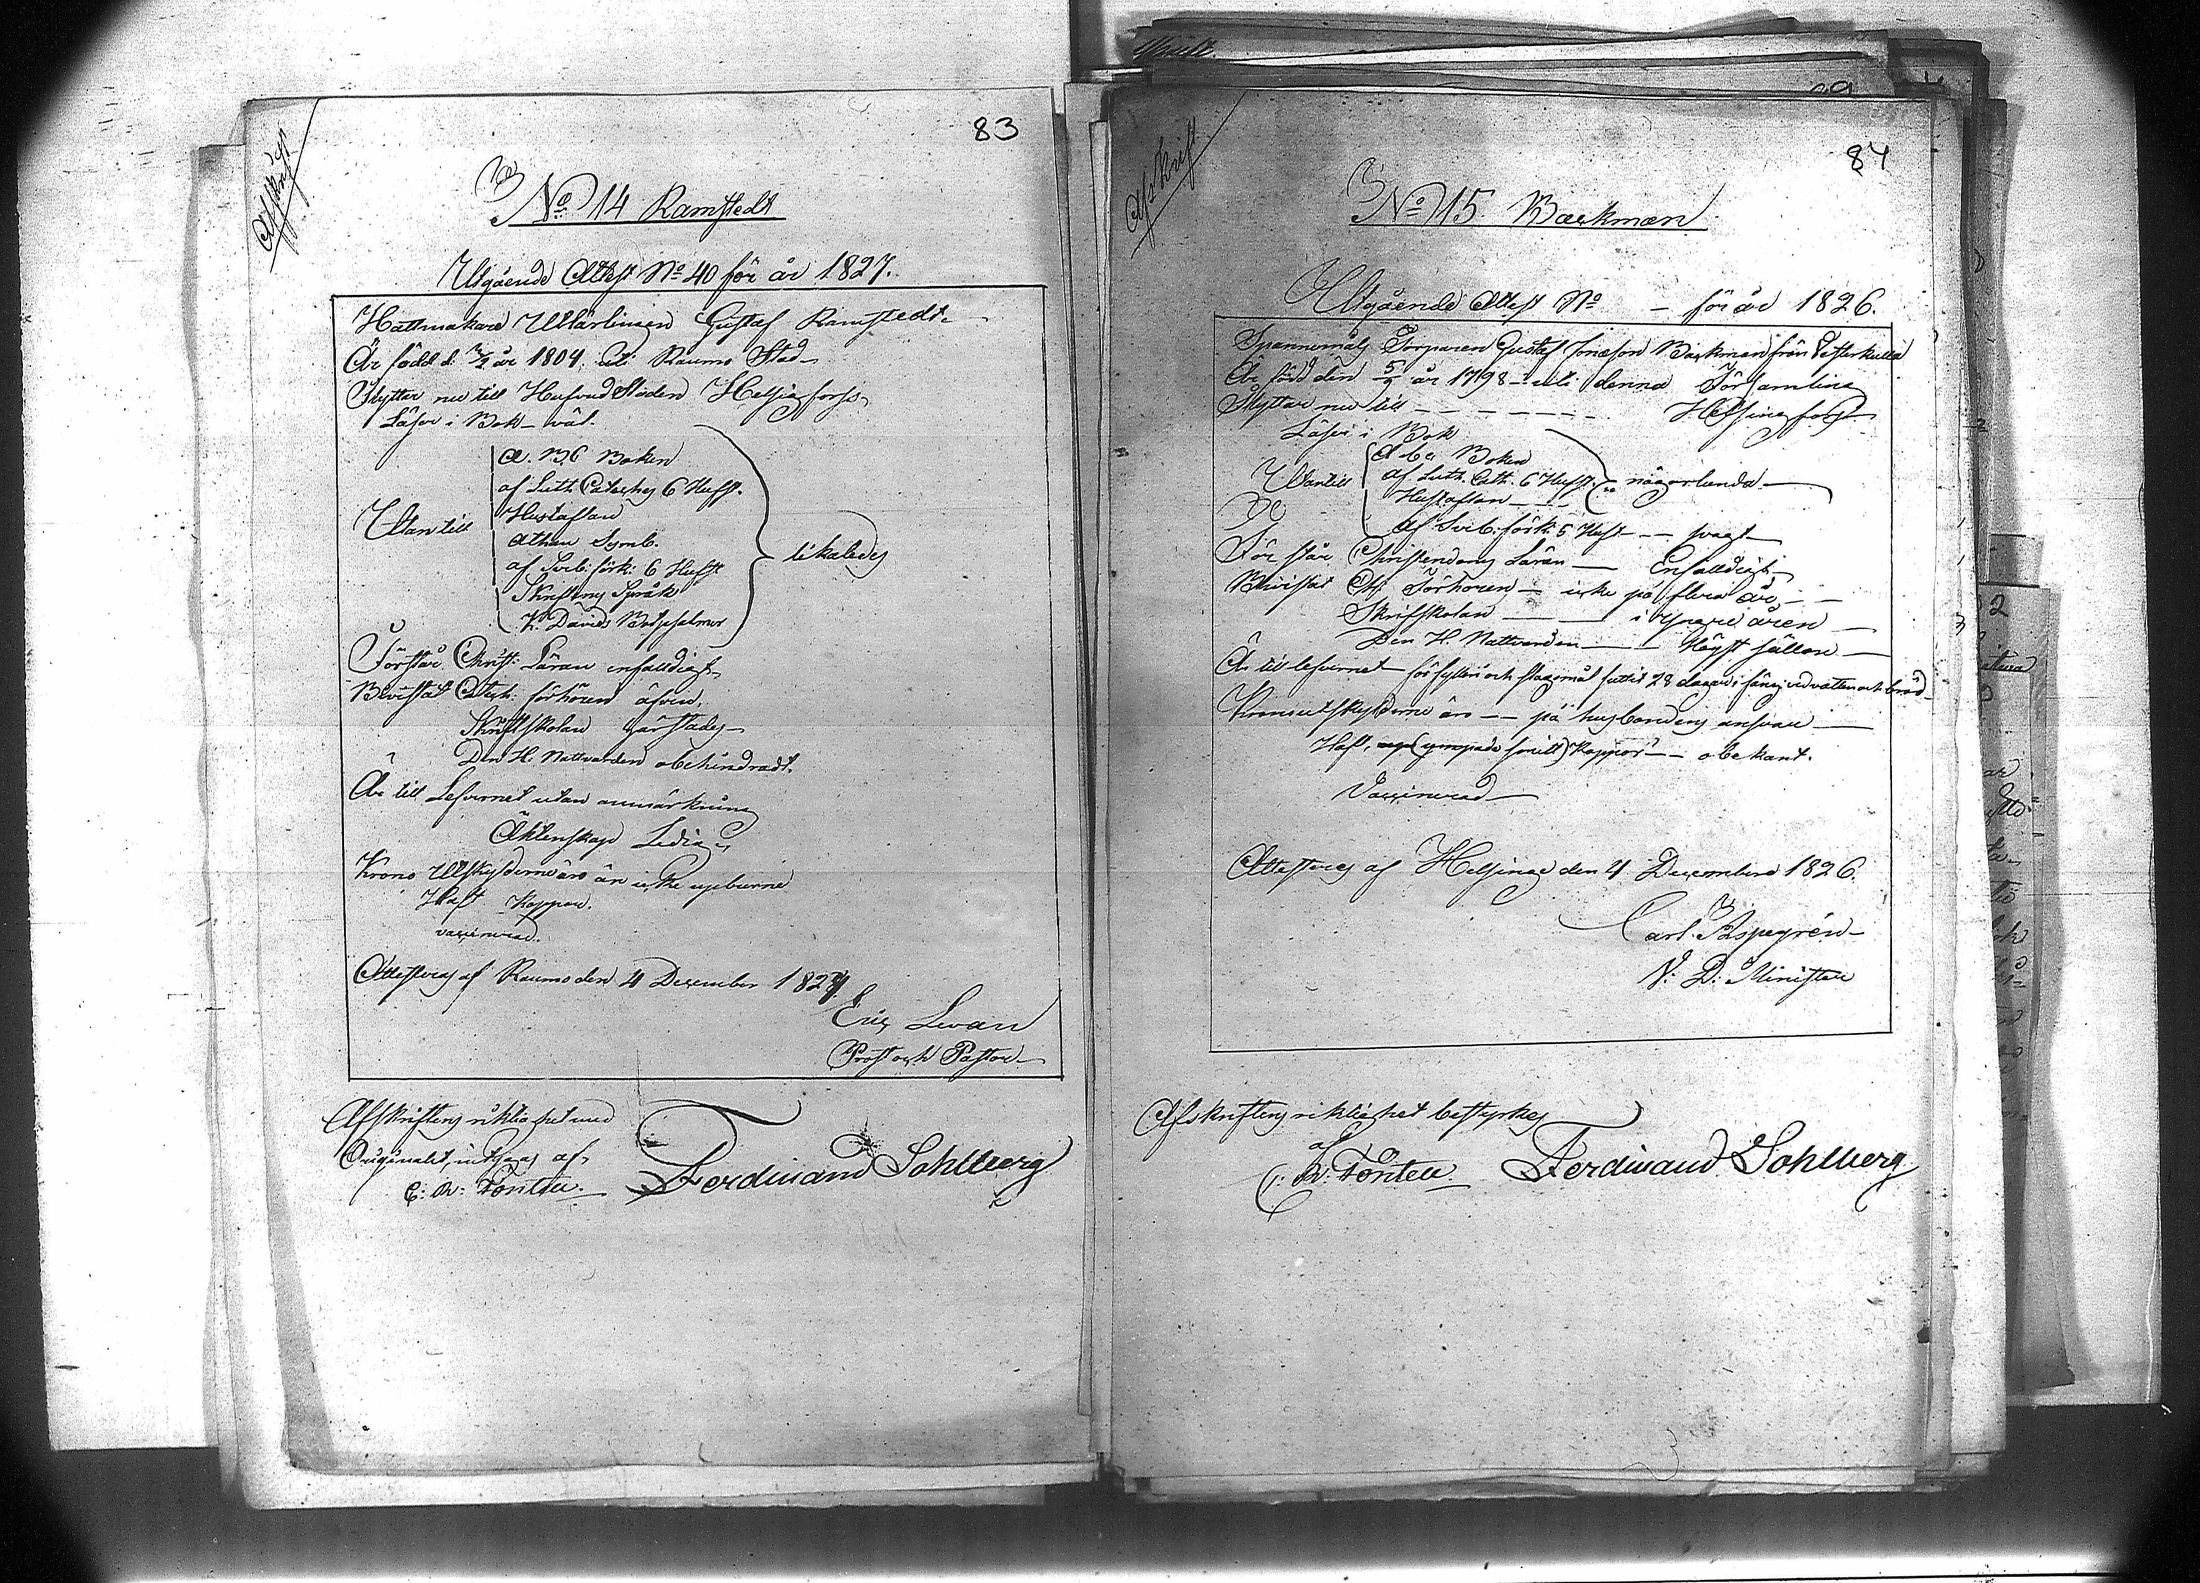 Afskrift
83
No 14 Ramstedt
Utgående Attest No 40 för år 1827.
Hattmakare Utlärlingen Gustaf Ramstedt.
Är född d. år 1804 uti Raumo Stad
Flyttar nu till Hufvud Staden Helsingfors
Läser i Bok väl.
A. B. C Boken
af Luth Cateches 6 Hufst.
Hustaflan
Utantill
Athan Symb.
likaledes
af Sveb. förk: 6 Hufst
Skriftens Språk
K. Davids Botpsalmer
Förstår Christ. Läran enfalldigt
Bevistat Catech. förhören äfven,
Skriftskolan härstädes
Den H. Nattvarden obehindradt.
Är till Lefvernet utan anmärkning
Äktenskap Ledig
Krono Utskylderne äro än icke upburne
Haft Koppor.
vaccinerad.
Attesteras af Raumo den 4 December 1827.
Eric Levan
Prost och Pastor
Afskriftens riktighet med
Originalet, intygas af,
C: R: Fontell. Ferdinand Sohlberg
Afskrift
84
No 15 Backman
Utgående Attest No – för år 1826.
Spannemåls Torparen Gustaf Jonasson Backman från Vesterkulla
Är född den år 1798 uti denna Församling
Flyttar nu till Helsingfors
Läser i Bok
A b c Boken
Utantill af Luth. Cath. 6 Hufst. någorlunda
Hustaflan
af Sveb. förk: 5 Hufst svagt
Förstår Christendoms Läran Enfalldigt
Bevistat Förhören icke på flera år
Skriftskolan i yngre åren
Den H. Nattvarden Högst sällan
Är till lefvernet för fylleri och slagsmål suttit 28 dagar i fängelse vid vatten och bröd
Kronoutskylderne äro på husbondens ansvar
Haft, Koppor obekant.
Vaccinerad
Attesteras af Helsinge den 4 December 1826.
Carl Aspegrén
V. D. Minister
Afskriftens riktighet bestyrkes
af
C: R: Fontell. Ferdinand Sohlberg